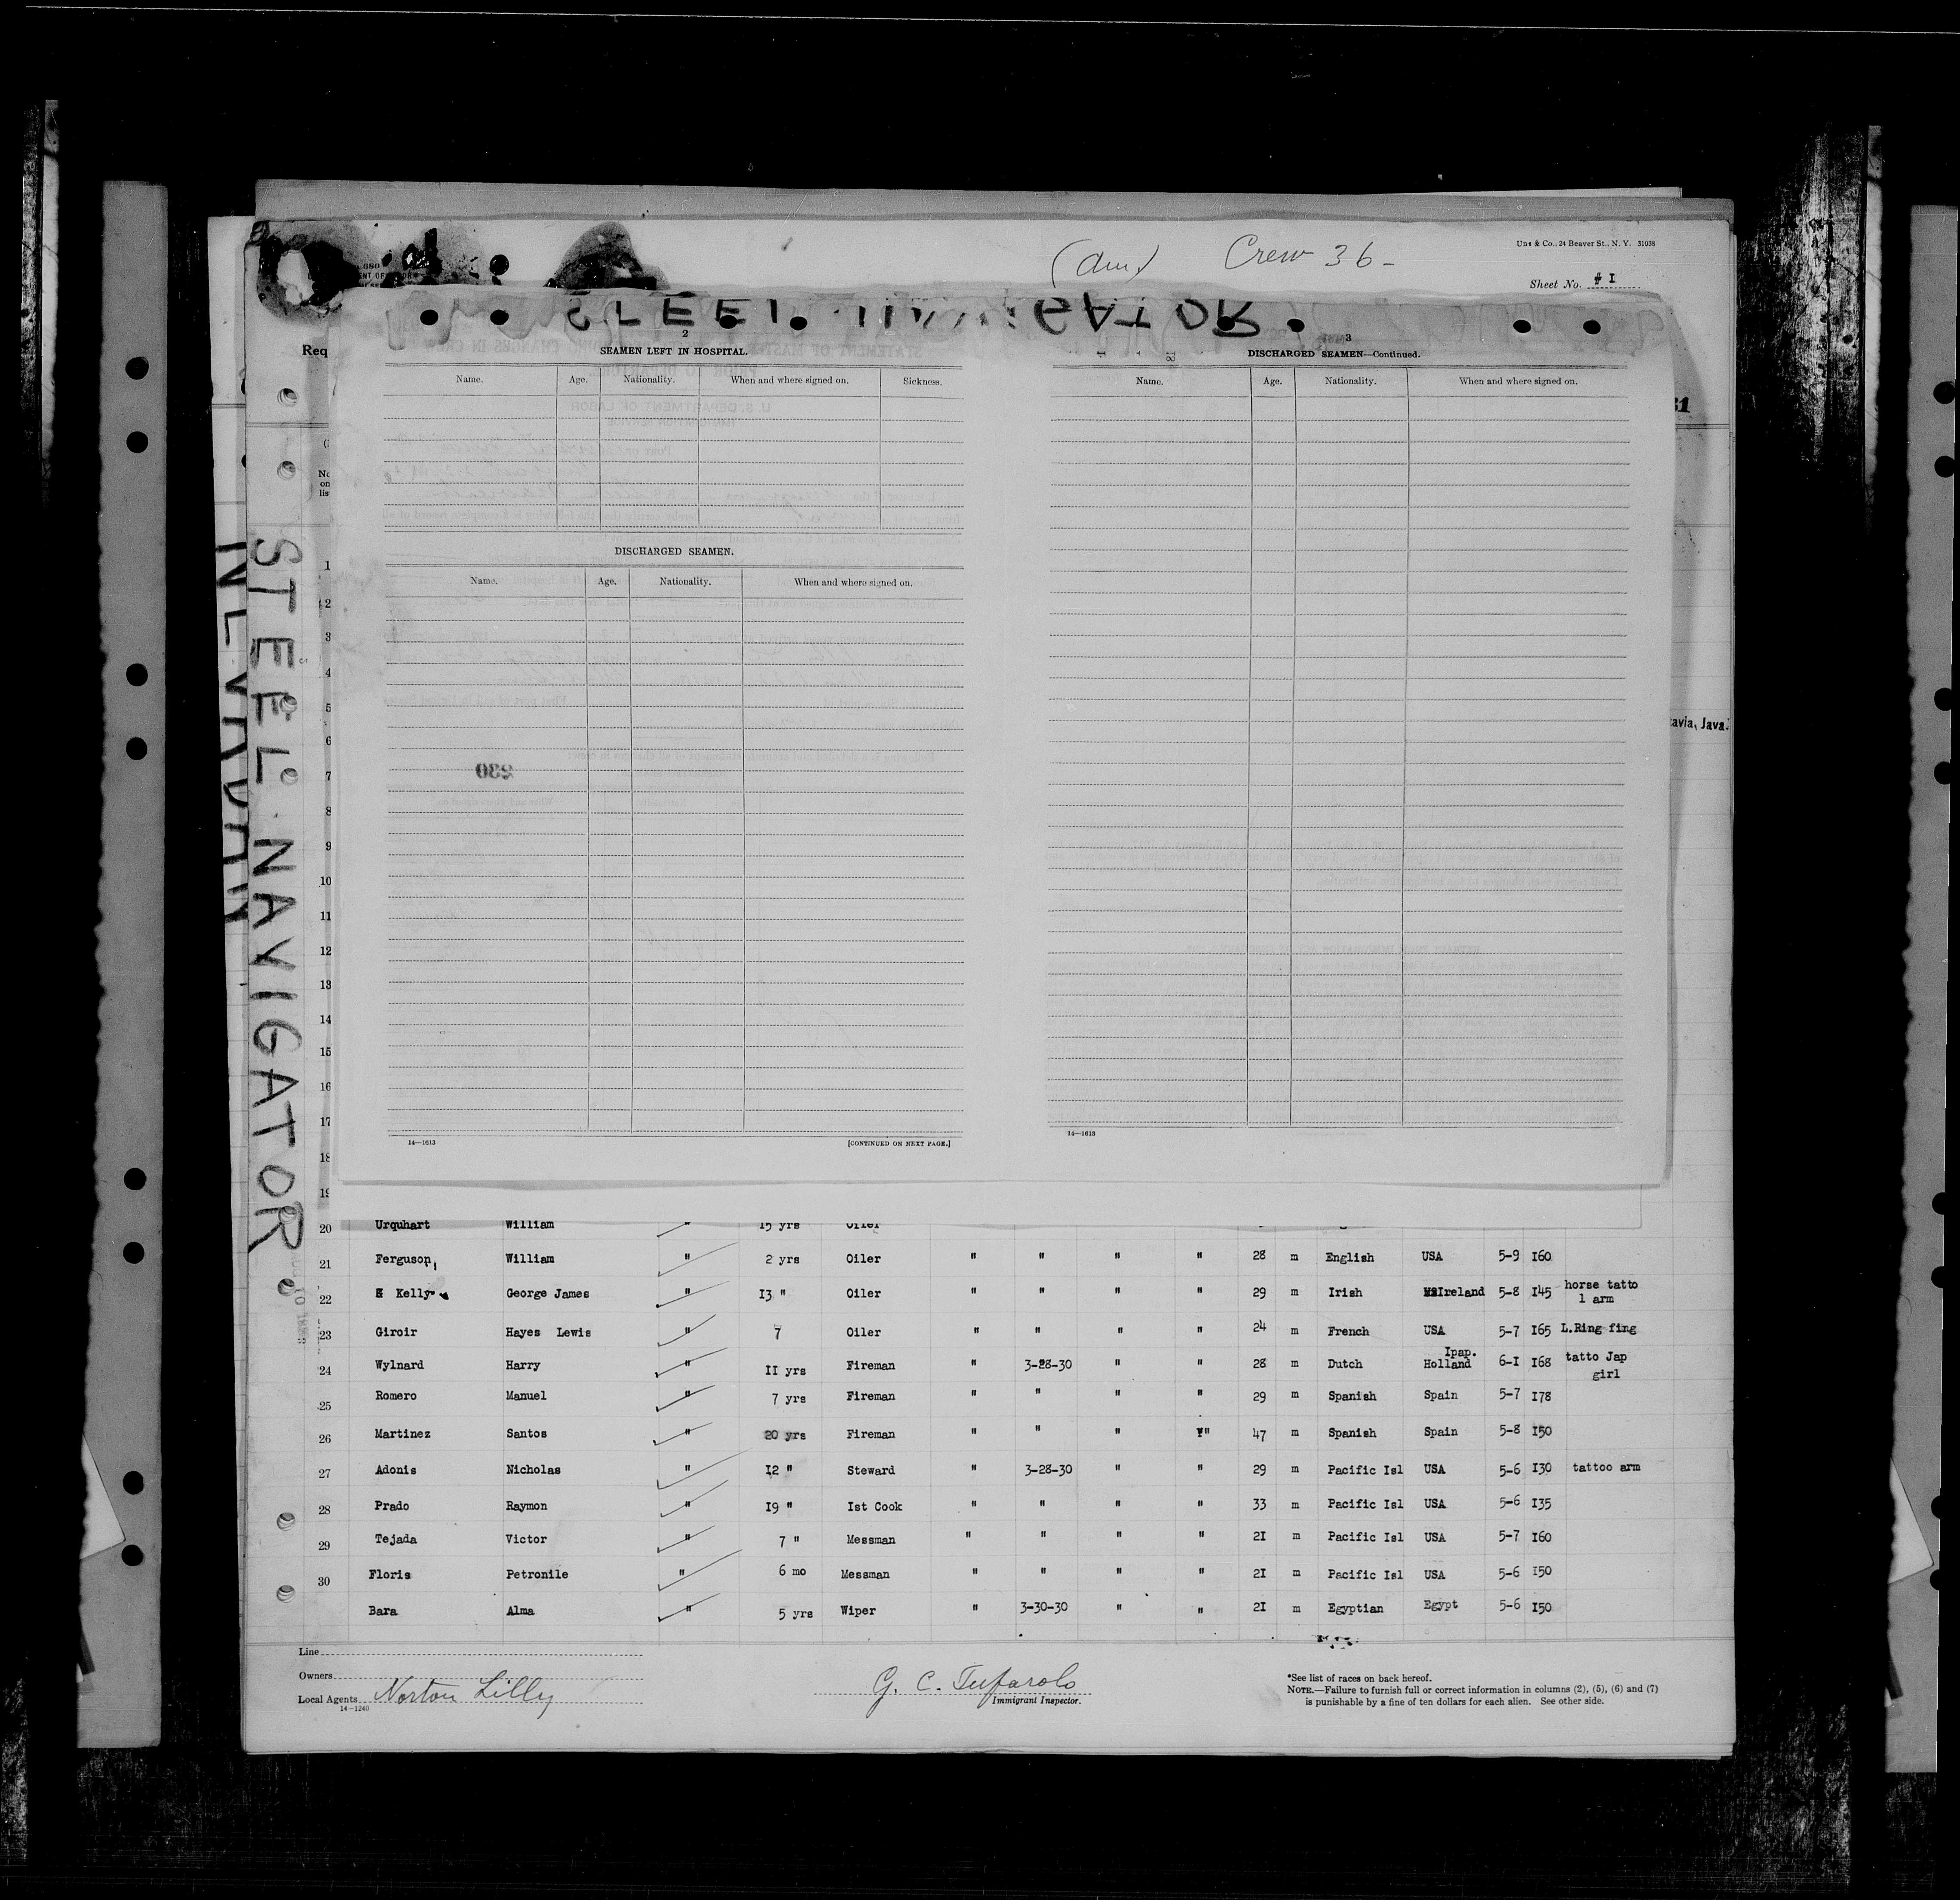 (Am.) Crew 36-
Unz & Co., 24 Beaver St., N. Y. 31038
Sheet No. #I
STEEL NAVIGATOR
Req
2
SEAMEN LEFT IN HOSPITAL.
Name. Age. Nationality. When and where signed on. Sickness.
DISCHARGED SEAMEN.
Name. Age. Nationality. When and where signed on.
14—1613
[CONTINUED ON NEXT PAGE.]
3
DISCHARGED SEAMEN—Continued.
Name. Age. Nationality. When and where signed on.
14—1613
31
avia, Java.
STEEL NAVIGATOR
1
2
3
4
5
6
7
8
9
10
11
12
13
14
15
16
17
18
19
20 Urquhart William " 15 yrs Oiler
21 Ferguson, William " 2 yrs Oiler " " " " 28 m English USA 5-9 I60
22 Kelly George James " I3 " Oiler " " " " 29 m Irish Ireland 5-8 I45 horse tatto
l arm
23 Giroir Hayes Lewis " 7 Oiler " " " " 24 m French USA 5-7 I65 L.Ring fing
24 Wylnard Harry " II yrs Fireman " 3-28-30 " " 28 m Dutch Ipap. Holland 6-I I68 tatto Jap
girl
25 Romero Manuel " 7 yrs Fireman " " " " 29 m Spanish Spain 5-7 I78
26 Martinez Santos " 20 yrs Fireman " " " " 47 m Spanish Spain 5-8 I50
27 Adonis Nicholas " I2 " Steward " 3-28-30 " " 29 m Pacific Isl USA 5-6 I30 tattoo arm
28 Prado Raymon " I9 " Ist Cook " " " " 33 m Pacific Isl USA 5-6 I35
29 Tejada Victor " 7 " Messman " " " " 2I m Pacific Isl USA 5-7 I60
30 Floris Petronile " 6 mo Messman " " " " 2I m Pacific Isl USA 5-6 I50
Bara Alma " 5 yrs Wiper " 3-30-30 " " 2I m Egyptian Egypt 5-6 I50
Line
Owners
Local Agents Norton Lilly
14—1240
G. C. Tufarolo
Immigrant Inspector.
*See list of races on back hereof.
NOTE.—Failure to furnish full or correct information in columns (2), (5), (6) and (7)
is punishable by a fine of ten dollars for each alien. See other side.